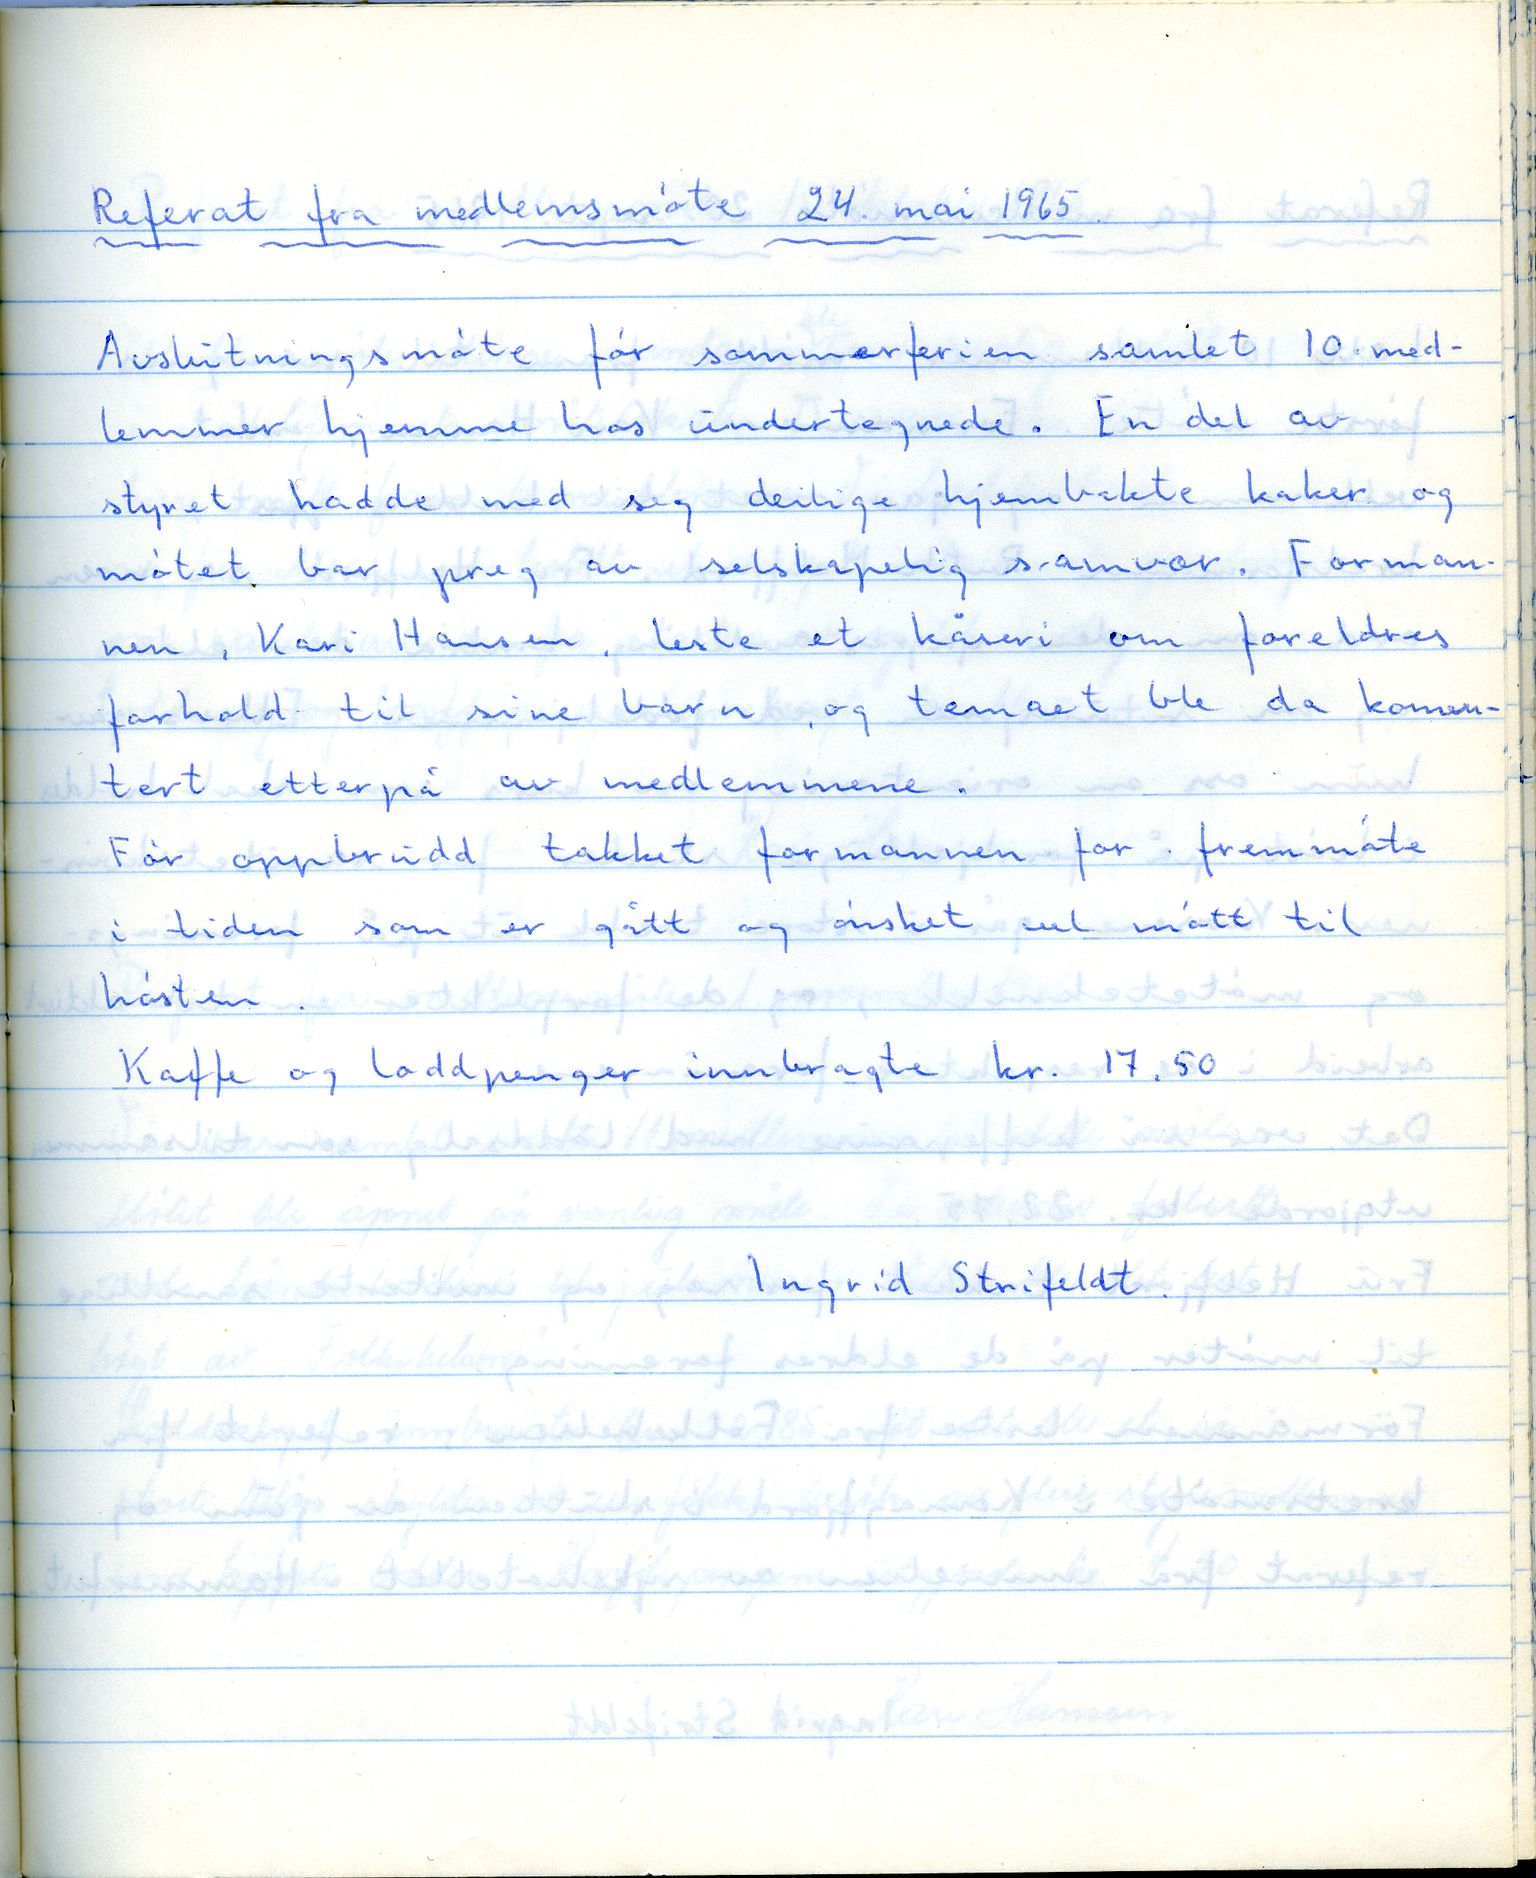 Referat fra medlemsmøte 24. mai 1965.
Avslutningsmøte før sommerferien samlet 10 med-
lemmer hjemme hos undertegnede. En del av
styret hadde med seg deilige hjembakte kaker og
møtet bar preg av selskapelig samvær. Forman-
nen, Kari Hansen, leste et kåseri om foreldres
forhold til sine barn, og temaet ble da komen-
tert etterpå av medlemmene.
Før oppbrudd takket formannen for fremmøte
i tiden som er gått og ønsket vel møtt til
høsten.
Kaffe og loddpenger innbragte kr. 17,50
Ingrid Strifeldt.